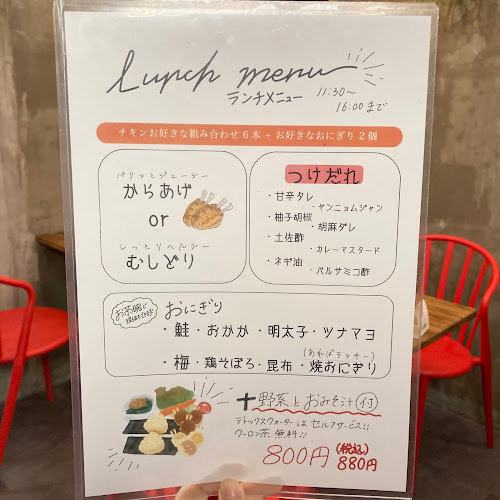 Lunch menu
ランチメニュー
11:30〜
16:00まで
チキンお好きな組み合わせ6本+お好きなおにぎり2個
パリッとジューシー
からあげ
or
しっとりヘルシー
むしどり
つけだれ
・甘辛タレ
・ヤンニョムジャン
・柚子胡椒
・胡麻ダレ
・土佐酢
・カレーマスタード
・ネギ油
・バルサミコ酢
お茶碗で
おにぎり
・鮭・おかか・明太子・ツナマヨ
(あればラッキー)
・梅・鶏そぼろ・昆布・焼おにぎり
+野菜とおみそ汁付
デトックスウォーターはセルフサービス!!
ウーロン茶無料!!
800円(税込)880円